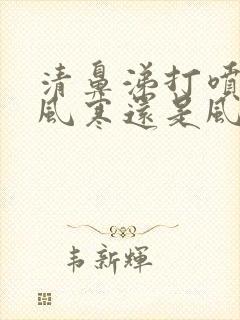 清鼻涕打噴
風寒還是風
韋新輝